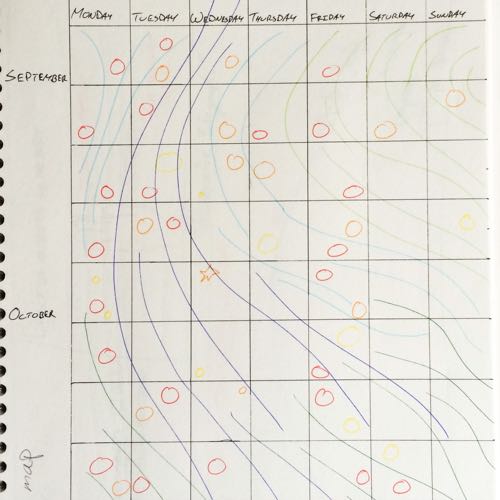 MONDAY TUESDAY WEDNESDAY THURSDAY FRIDAY SATURDAY SUNDAY
SEPTEMBER
OCTOBER
map